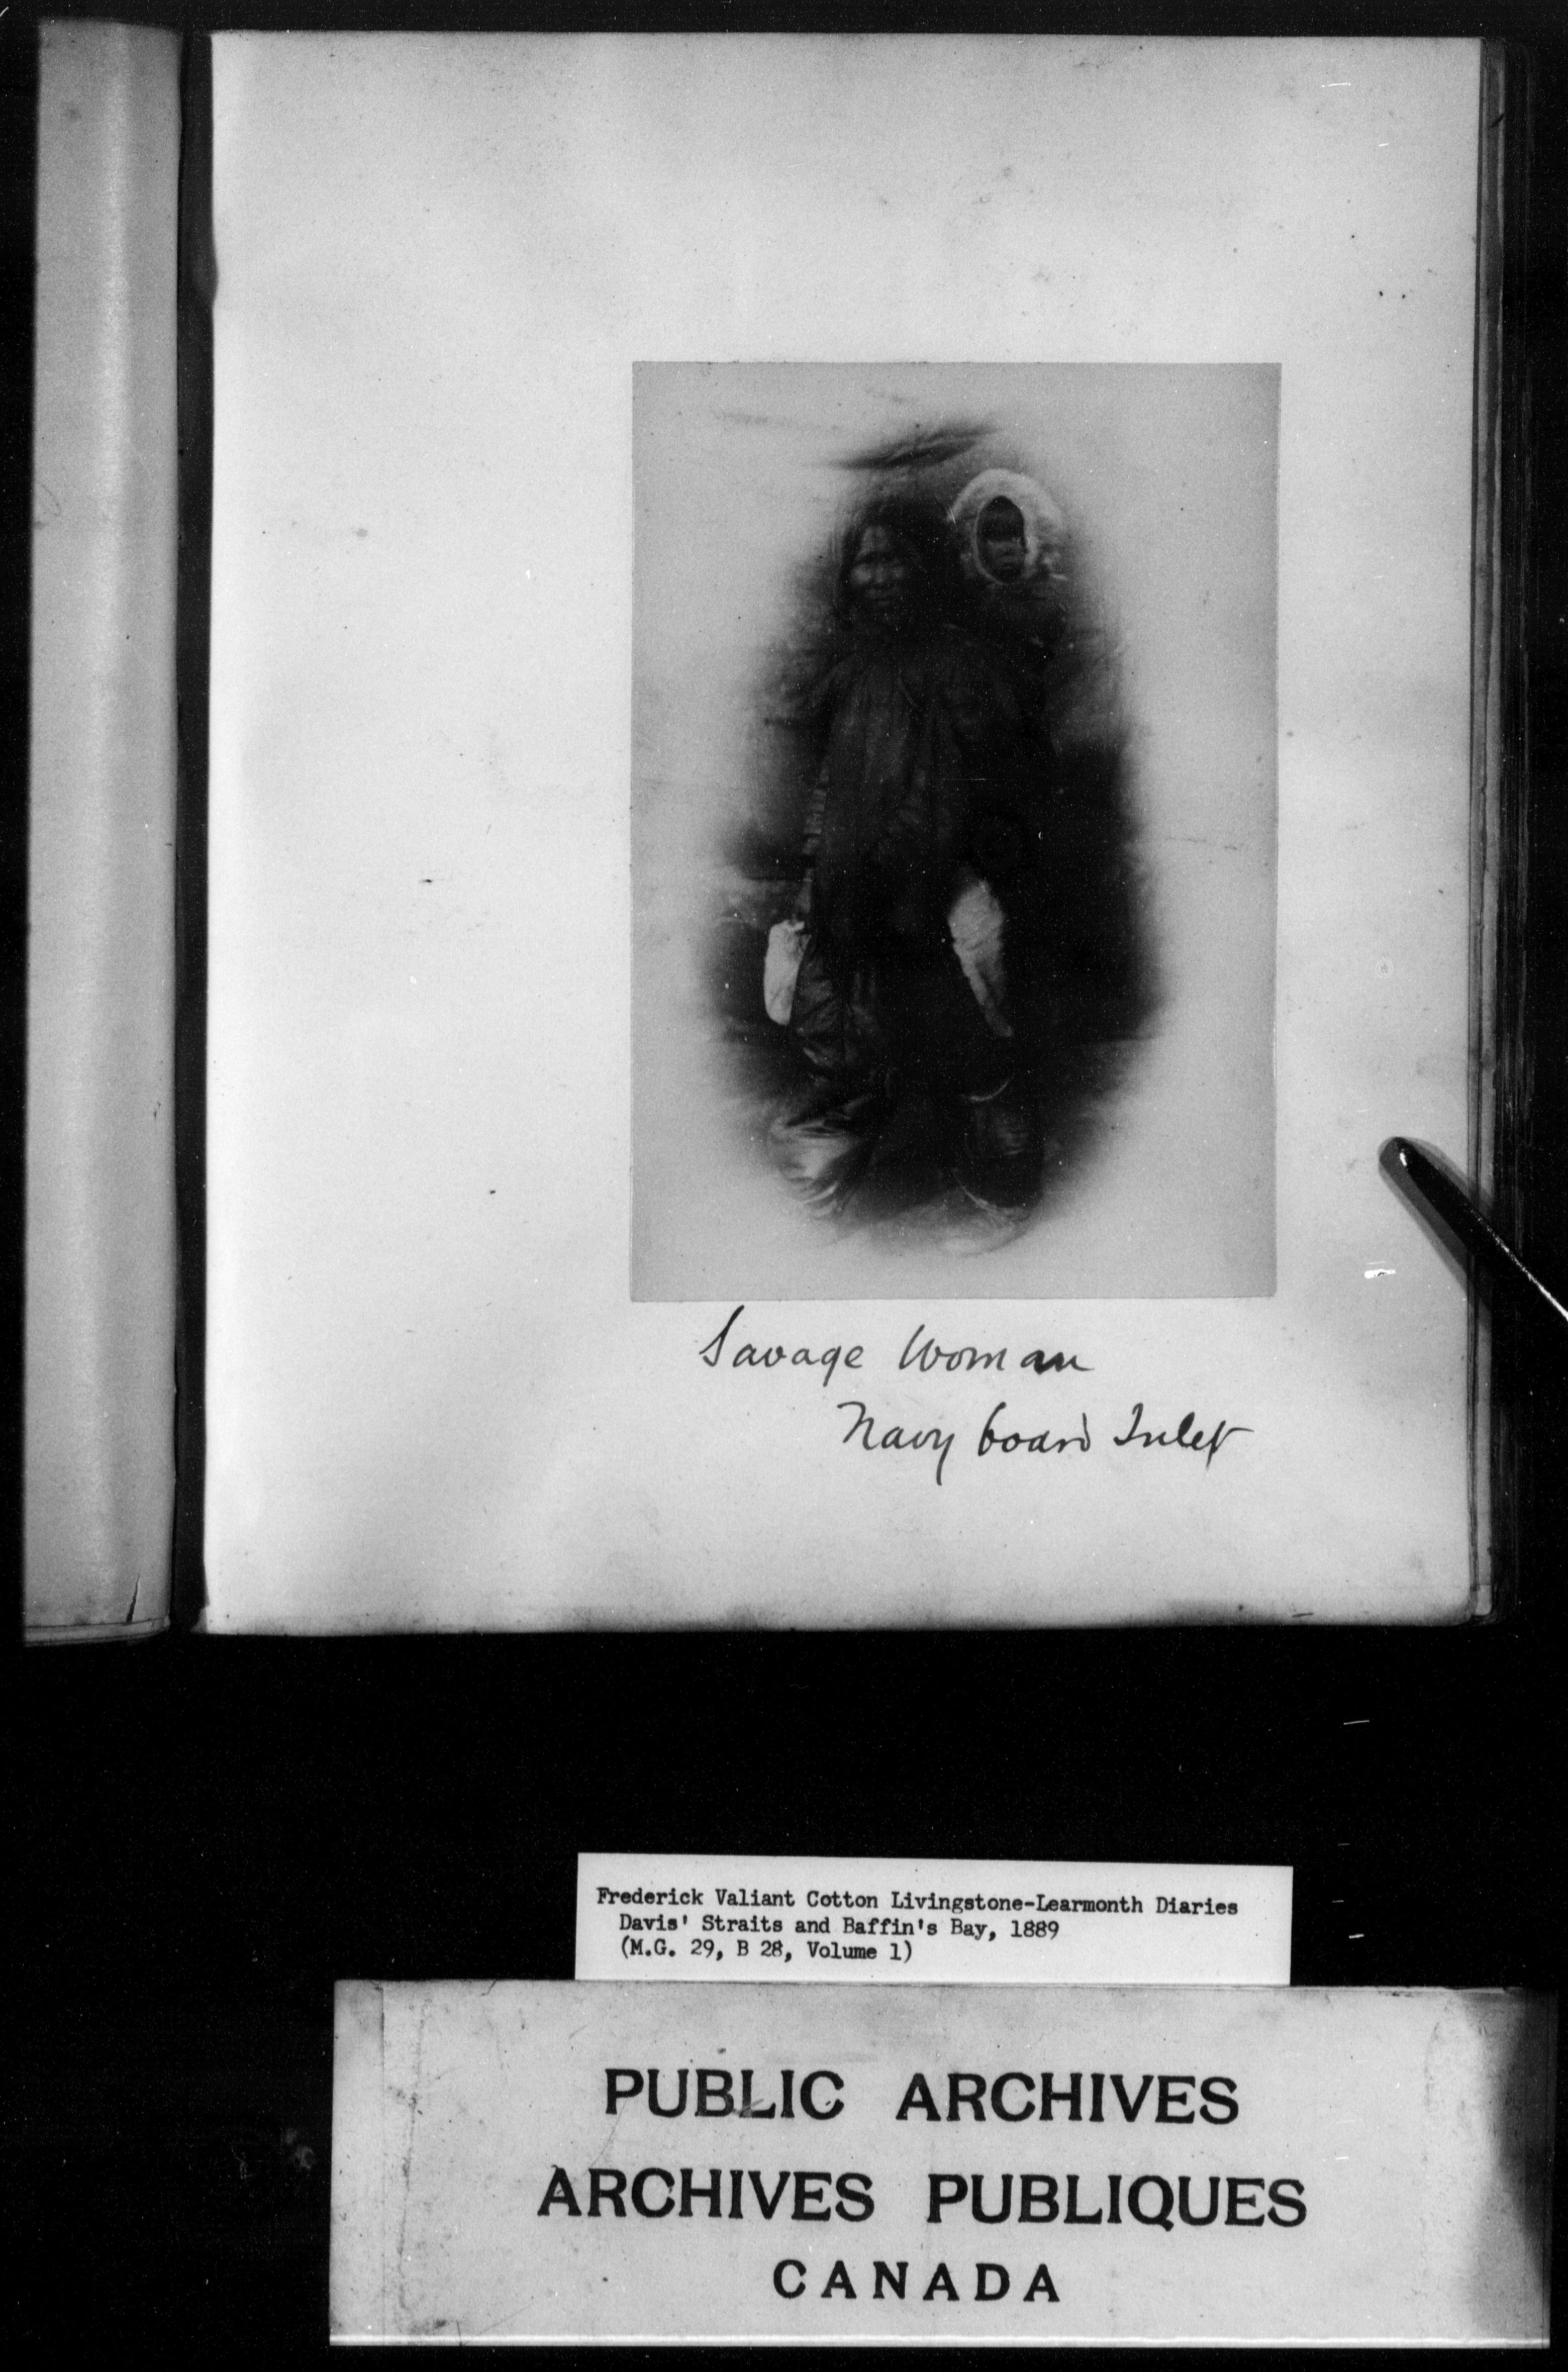 Savage Woman
Navy board Inlet
Frederick Valiant Cotton Livingstone-Learmonth Diaries
Davis' Straits and Baffin's Bay, 1889
(M.G. 29, B 28, Volume 1)
PUBLIC ARCHIVES
ARCHIVES PUBLIQUES
CANADA